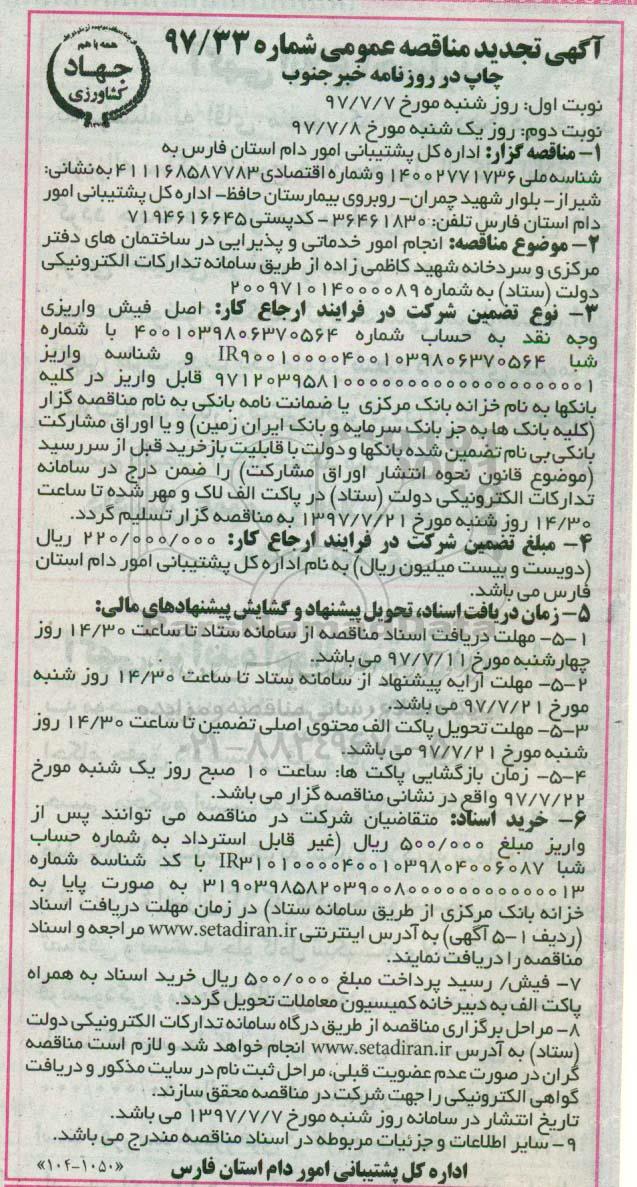 آگهی تجدید مناقصه عمومی شماره ۹۷/۳۳
چاپ در روزنامه خبرجنوب
همه با هم
جهاد
کشاورزی
نوبت اول: روز شنبه مورخ ۹۷/۷/۷
نوبت دوم: روز یک شنبه مورخ ۹۷/۷/۸
۱- مناقصه گزار: اداره کل پشتیبانی امور دام استان فارس به
شناسه ملی ۱۴۰۰۲۷۷۱۷۳۶ و شماره اقتصادی ۴۱۱۱۶۸۵۸۷۷۸۳ به نشانی:
شیراز- بلوار شهید چمران- روبروی بیمارستان حافظ- اداره کل پشتیبانی امور
دام استان فارس تلفن: ۳۶۴۶۱۸۳۰- کدپستی ۷۱۹۴۶۱۶۶۴۵
۲- موضوع مناقصه: انجام امور خدماتی و پذیرایی در ساختمان های دفتر
مرکزی و سردخانه شهید کاظمی زاده از طریق سامانه تدارکات الکترونیکی
دولت (ستاد) به شماره ۲۰۰۹۷۱۰۱۴۰۰۰۰۸۹
۳- نوع تضمین شرکت در فرایند ارجاع کار: اصل فیش واریزی
وجه نقد به حساب شماره ۴۰۰۱۰۳۹۸۰۶۳۷۰۵۶۴ با شماره
شبا IR۹۰۰۱۰۰۰۰۴۰۰۱۰۳۹۸۰۶۳۷۰۵۶۴ و شناسه واریز
قابل واریز در کلیه
بانکها به نام خزانه بانک مرکزی یا ضمانت نامه بانکی به نام مناقصه گزار
(کلیه بانک ها به جز بانک سرمایه و بانک ایران زمین) و یا اوراق مشارکت
بانکی بی نام تضمین شده بانکها و دولت با قابلیت بازخرید قبل از سررسید
(موضوع قانون نحوه انتشار اوراق مشارکت) را ضمن درج در سامانه
تدارکات الکترونیکی دولت (ستاد) در پاکت الف لاک و مهر شده تا ساعت
۱۴/۳۰ روز شنبه مورخ ۱۳۹۷/۷/۲۱ به مناقصه گزار تسلیم گردد.
۴- مبلغ تضمین شرکت در فرایند ارجاع کار: ۲۲۰/۰۰۰/۰۰۰ ریال
(دویست و بیست میلیون ریال) به نام اداره کل پشتیبانی امور دام استان
فارس می باشد.
۵- زمان دریافت اسناد، تحویل پیشنهاد و گشایش پیشنهادهای مالی:
۵-۱- مهلت دریافت اسناد مناقصه از سامانه ستاد تا ساعت ۱۴/۳۰ روز
چهارشنبه مورخ ۹۷/۷/۱۱ می باشد.
۵-۲- مهلت ارایه پیشنهاد از سامانه ستاد تا ساعت ۱۴/۳۰ روز شنبه
مورخ ۹۷/۷/۲۱ می باشد.
۵-۳- مهلت تحویل پاکت الف محتوی اصلی تضمین تا ساعت ۱۴/۳۰ روز
شنبه مورخ ۹۷/۷/۲۱ می باشد.
۵-۴- زمان بازگشایی پاکت ها: ساعت ۱۰ صبح روز یک شنبه مورخ
۹۷/۷/۲۲ واقع در نشانی مناقصه گزار می باشد.
۶- خرید اسناد: متقاضیان شرکت در مناقصه می توانند پس از
واریز مبلغ ۵۰۰/۰۰۰ ریال (غیر قابل استرداد به شماره حساب
شبا IR۳۱۰۱۰۰۰۰۴۰۰۱۰۳۹۸۰۴۰۰۶۰۸۷ با کد شناسه شماره
به صورت پایا به
خزانه بانک مرکزی از طریق سامانه ستاد) در زمان مهلت دریافت اسناد
(ردیف ۱-۵ آگهی) به آدرس اینترنتی www.setadiran.ir مراجعه و اسناد
مناقصه را دریافت نمایند.
۷- فیش/ رسید پرداخت مبلغ ۵۰۰/۰۰۰ ریال خرید اسناد به همراه
پاکت الف به دبیرخانه کمیسیون معاملات تحویل گردد.
۸- مراحل برگزاری مناقصه از طریق درگاه سامانه تدارکات الکترونیکی دولت
(ستاد) به آدرس www.setadiran.ir انجام خواهد شد و لازم است مناقصه
گران در صورت عدم عضویت قبلی، مراحل ثبت نام در سایت مذکور و دریافت
گواهی الکترونیکی را جهت شرکت در مناقصه محقق سازند.
تاریخ انتشار در سامانه روز شنبه مورخ ۱۳۹۷/۷/۷ می باشد.
۹- سایر اطلاعات و جزئیات مربوطه در اسناد مناقصه مندرج می باشد.
اداره کل پشتیبانی امور دام استان فارس «۱۰۴-۱۰۵۰»